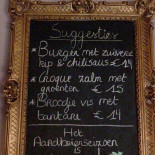 Suggesties
* Burger met zuivere
kip & chilisaus € 14
* Croque zalm met
groenten € 15
* Broodje vis met
tartare € 14
Het
Aardbeienseizoen
is